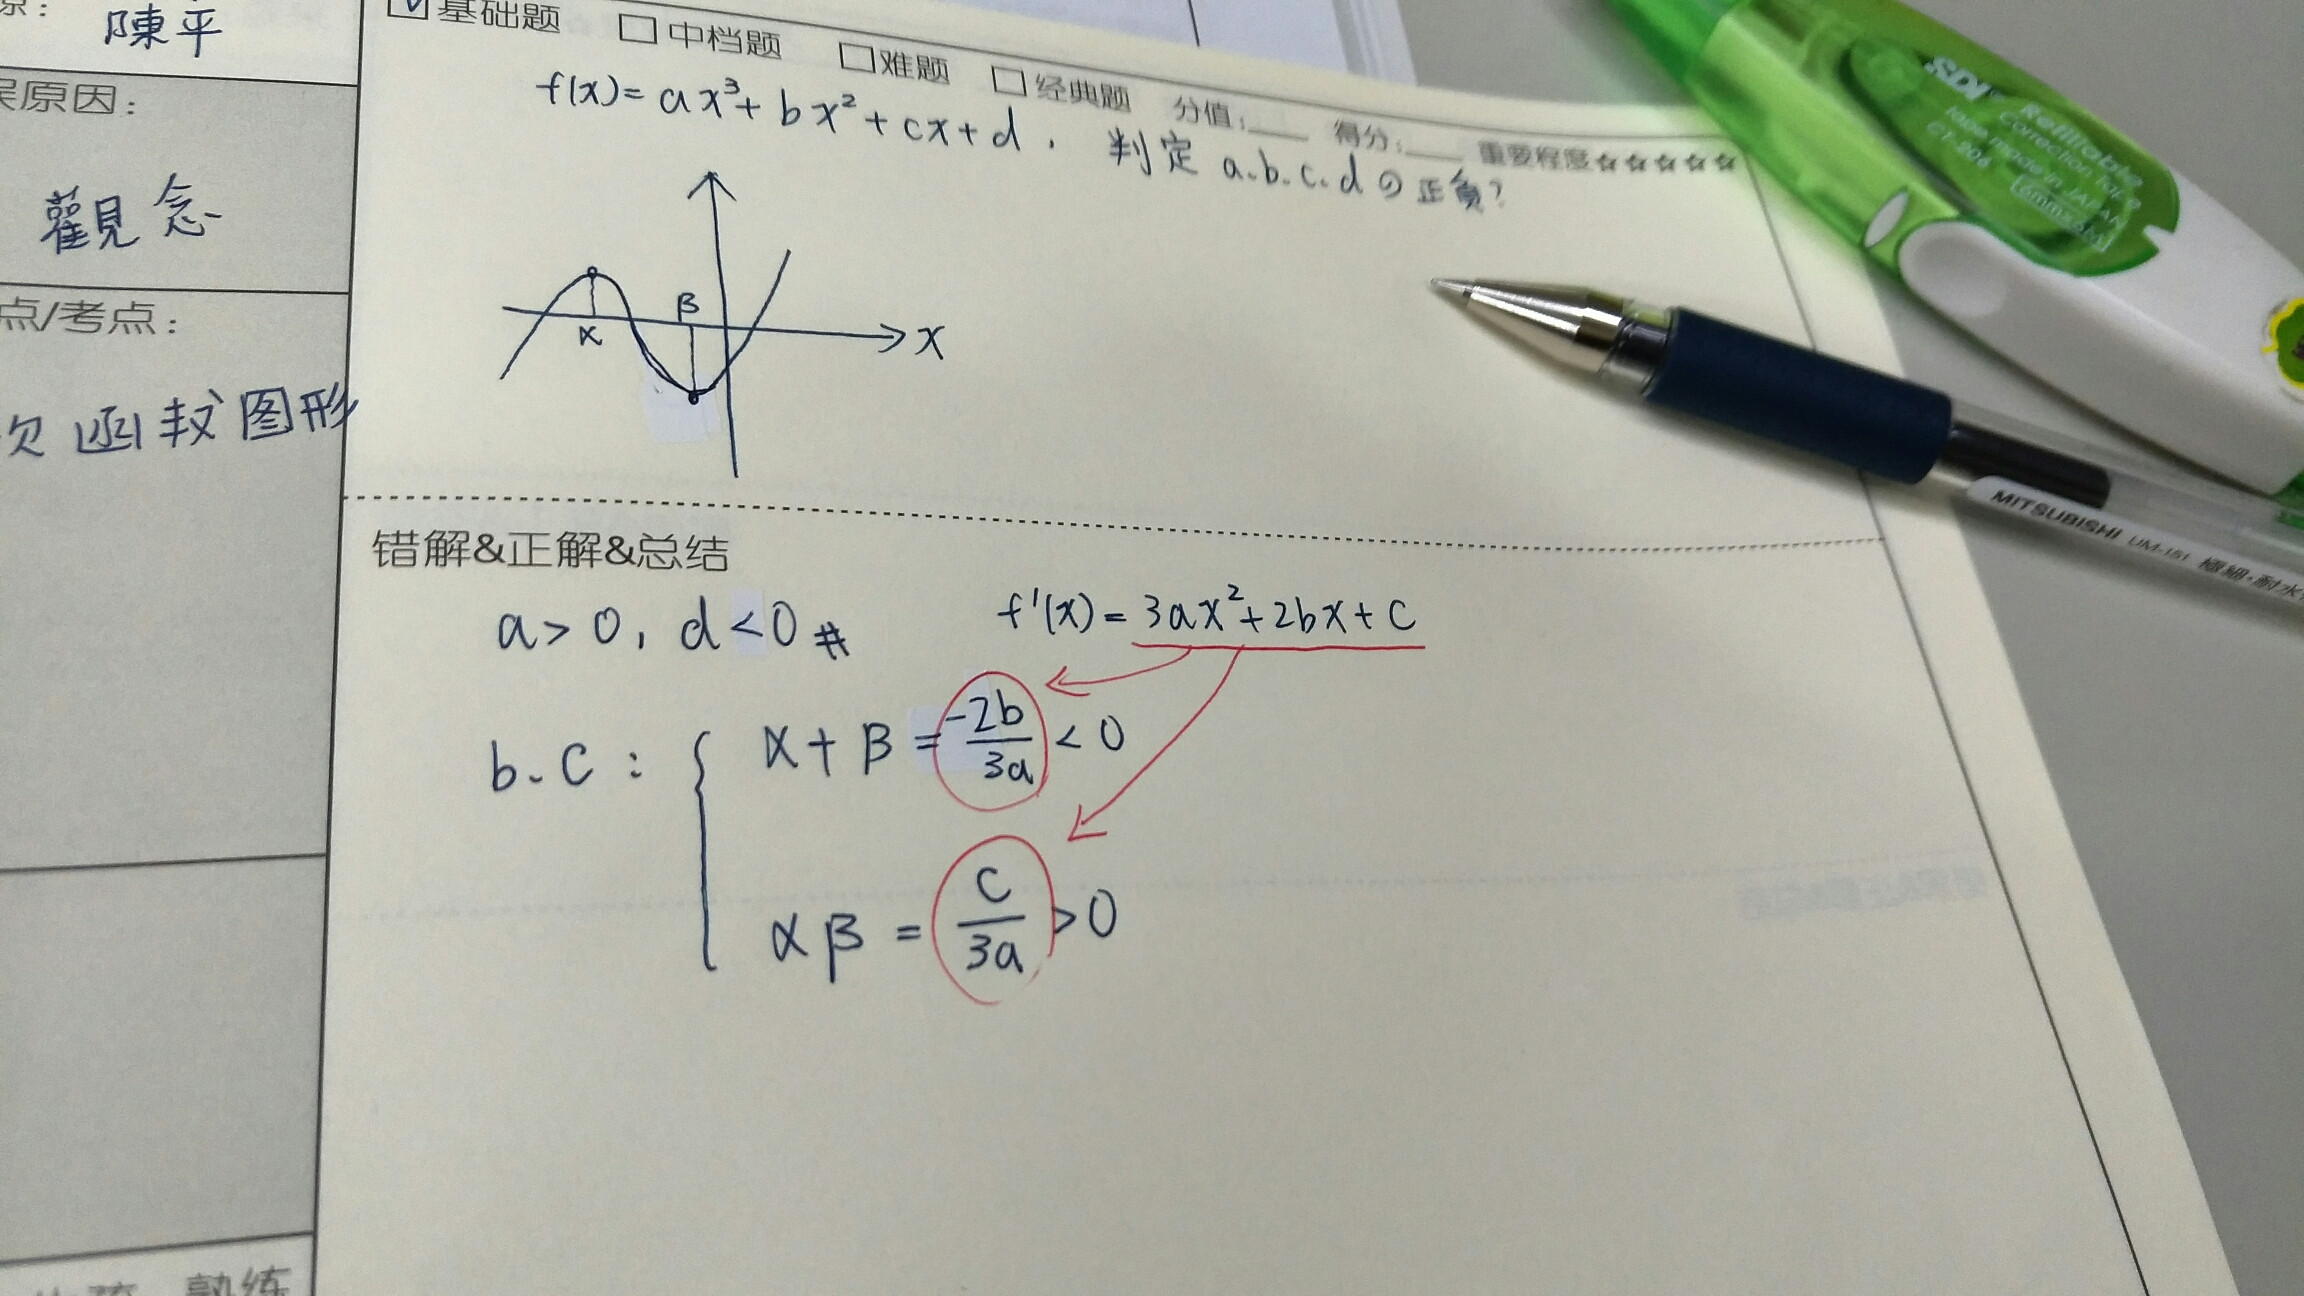 陳平
原因：
觀念
点/考点：
次函数图形
熟练
基础题 中档题 难题 经典题 分值： 得分： 重要程度☆☆☆☆☆
f(x)= ax³+ bx²+ cx+ d , 判定 a.b.c.d の正負?
α
β
x
错解&正解&总结
a> 0, d<0 #
f'(x)= 3ax²+2bx+ c
b、c : { α+ β = -2b/3a < 0
αβ = c/3a >0
SDI
Refillable
Correction Tape
tape made in JAPAN
CT-206
6mmx6M
MITSUBISHI UM-151 極細·耐水